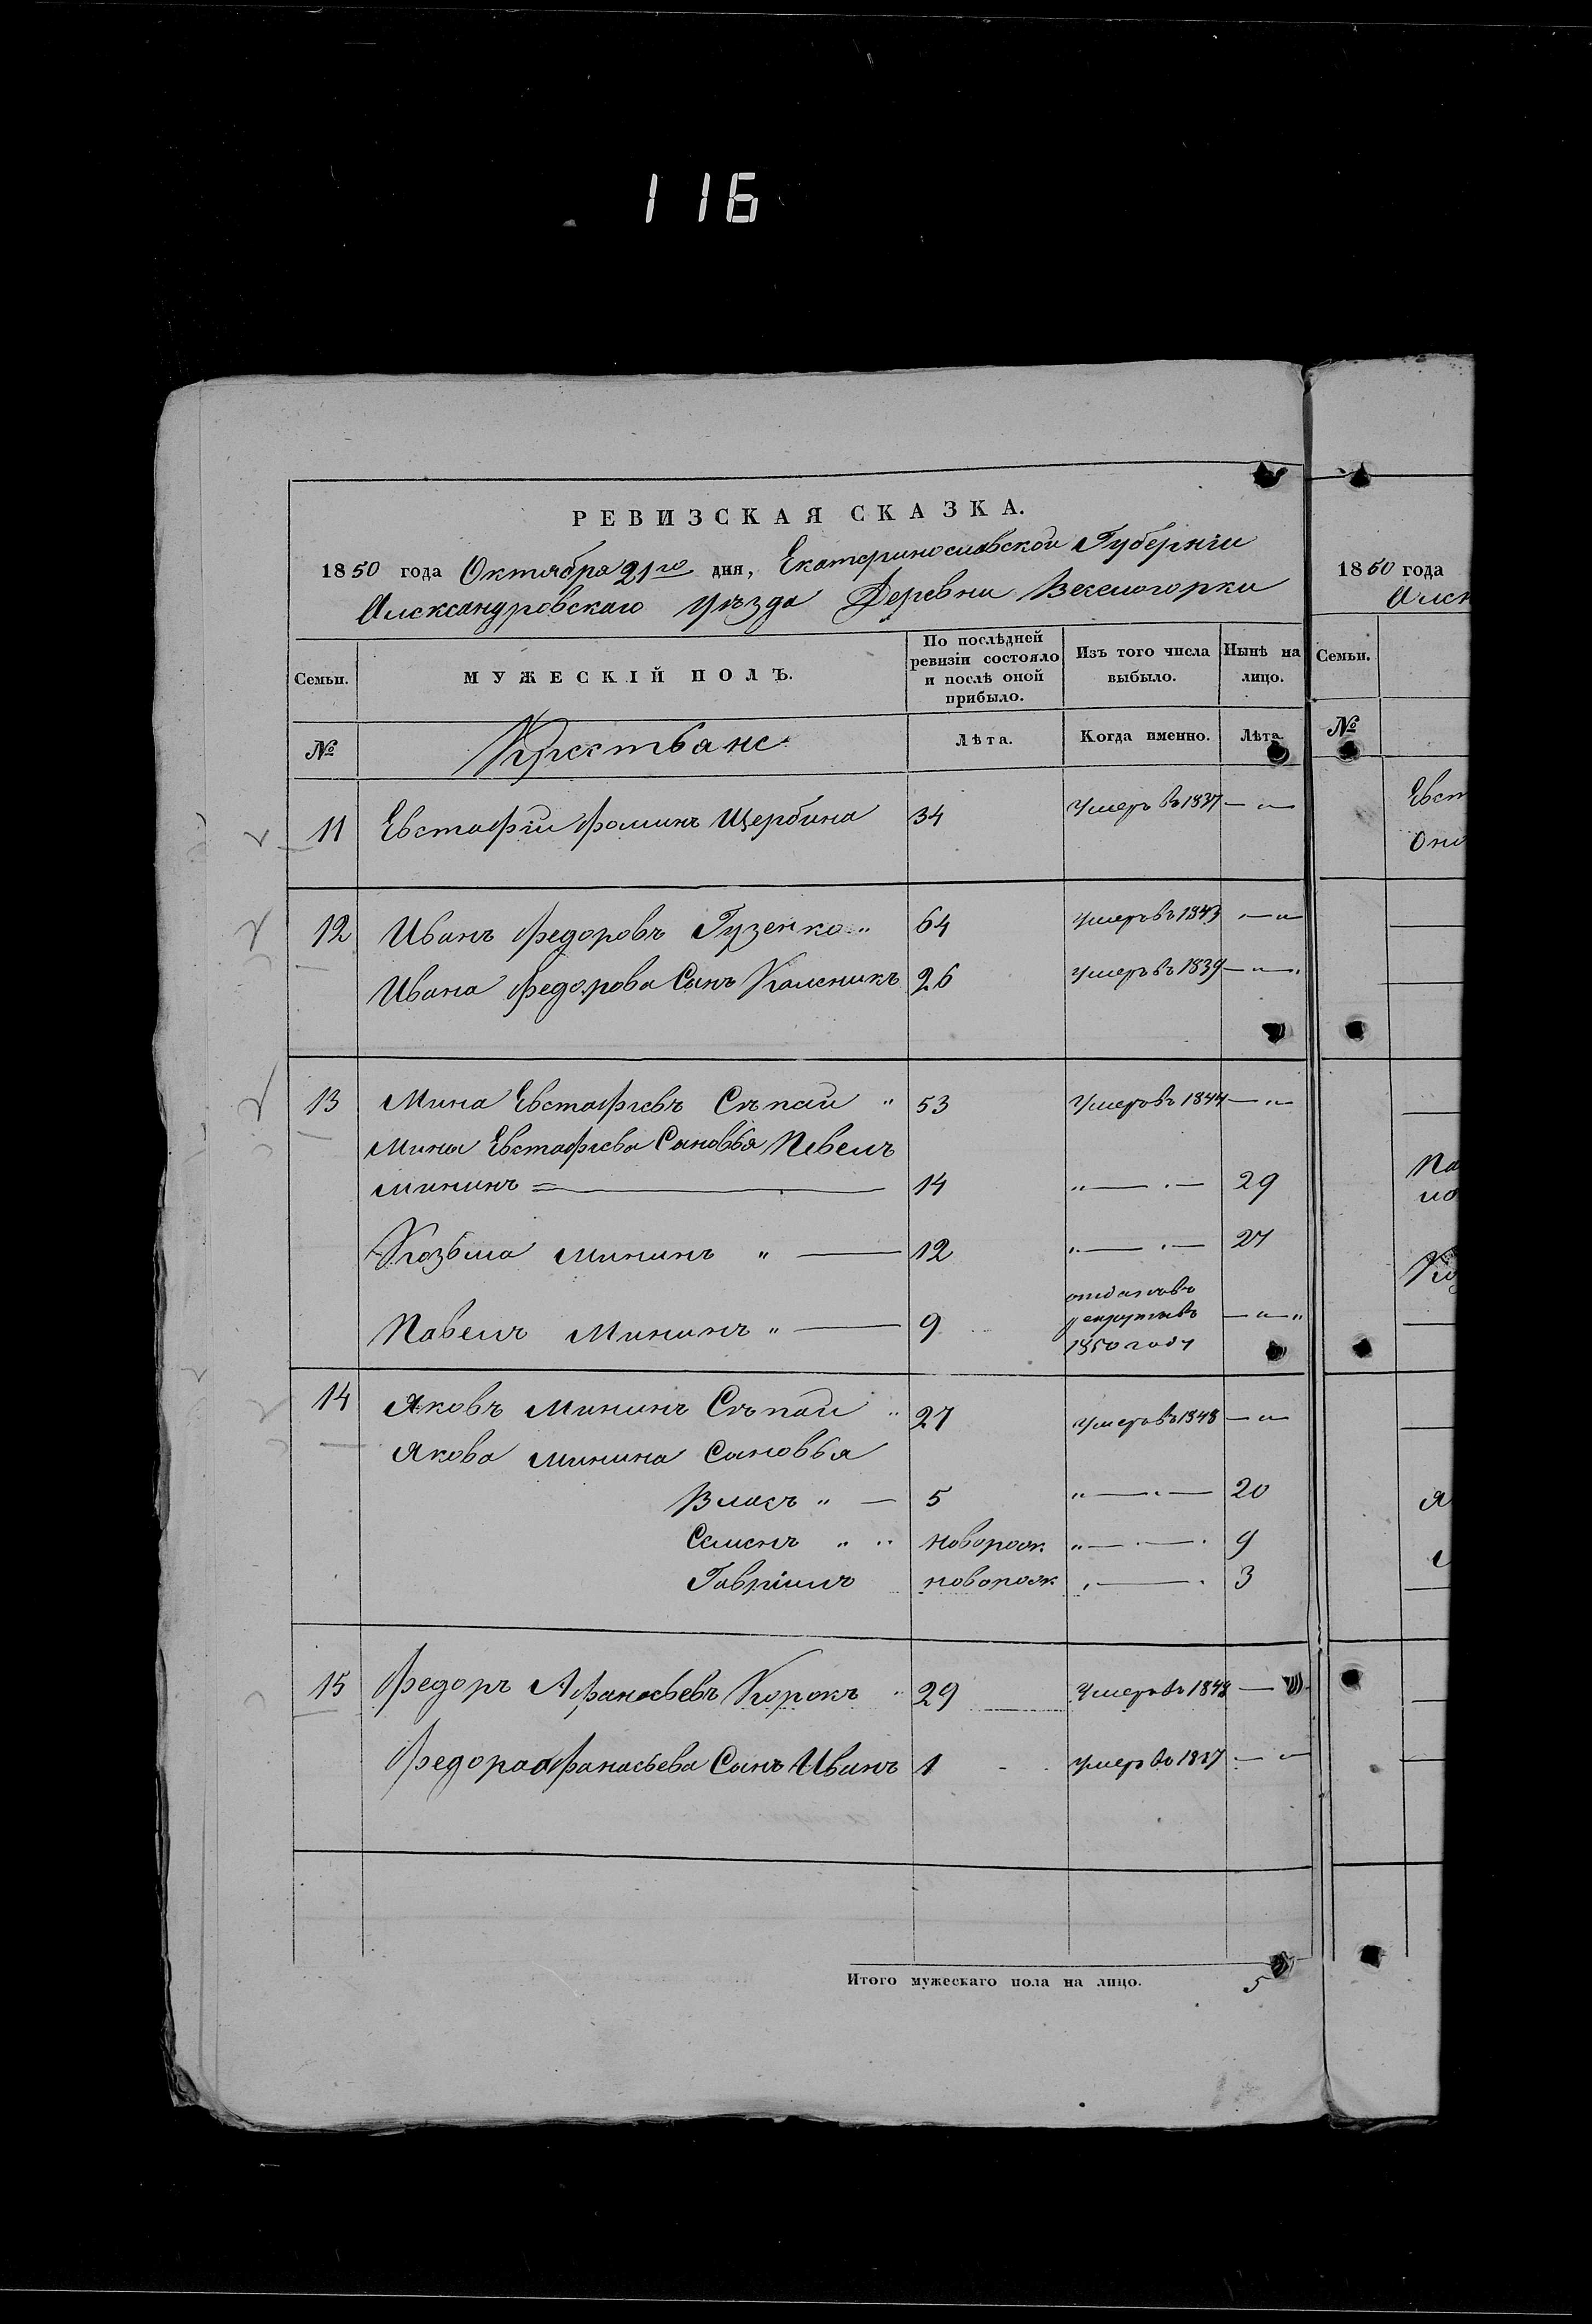 116
РЕВИЗСКАЯ СКАЗКА.
1850 года Октября 21го дня, Екатеринославской Губерніи
Александровскаго уѣзда Деревни Веселогорки
Семьи.
МУЖЕСКІЙ ПОЛЪ.
По послѣдней ревизіи состояло и послѣ оной прибыло.
Изъ того числа выбыло.
Нынѣ на лицо.
№
Крестьяне
Лѣта.
Когда именно.
Лѣта
11 Евстафій Фоминъ Щербина 34 Умеръ въ 1837 — „ —
12 Иванъ Федоровъ Гузенко „ 64 Умеръ въ 1843 — „ —
Ивана Федорова Сынъ Каленикъ 26 Умеръ въ 1839 — „ —
13 Мина Евстафіевъ Сѣпай „ 53 Умеръ въ 1844 — „ —
Мины Евстафіева Сыновья Павелъ
Мининъ 14 „ — 29
Козьма Мининъ „ — 12 „ — 27
Павелъ Мининъ „ — 9 отданъ въ рекруты въ 1850 году — „ —
14 Яковъ Мининъ Сѣпай „ 27 Умеръ въ 1848 — „ —
Якова Минина Сыновья
Власъ „ — 5 „ — 20
Семенъ „ „ новорож. „ — 9
Гавріилъ новорож. „ — 3
15 Федоръ Афанасьевъ Корокъ 29 Умеръ въ 1848 —
Федора Афанасьева Сынъ Иванъ 1 Умеръ въ 1837 — „ —
Итого мужескаго пола на лицо. 5
1850 года
Алек
Семьи.
№
Евст
Оно
Па
Коз
Я